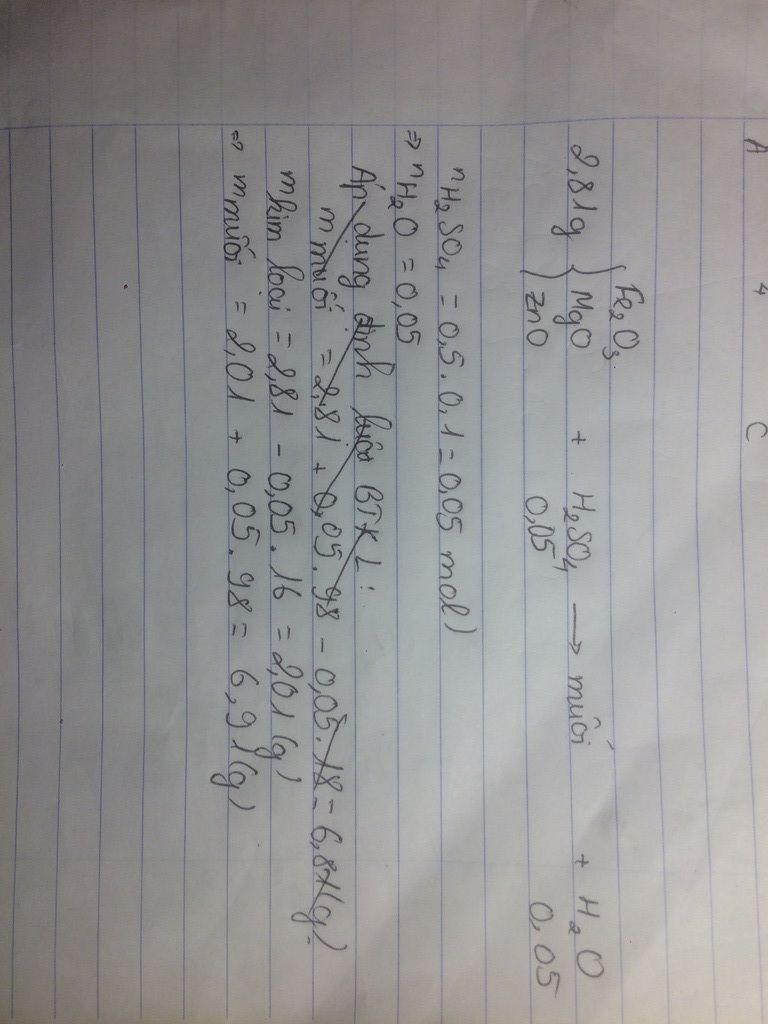 A 4 C
Fe2O3
2,81g { MgO + H2SO4 → muối + H2O
ZnO 0,05 0,05
nH2SO4 = 0,5 . 0,1 = 0,05 mol)
⇒ nH2O = 0,05
Áp dụng định luật BTKL :
m muối = 2,81 + 0,05 . 98 - 0,05 . 18 = 6,81(g)
m kim loại = 2,81 - 0,05 . 16 = 2,01 (g)
⇒ m muối = 2,01 + 0,05 . 98 = 6,91(g)